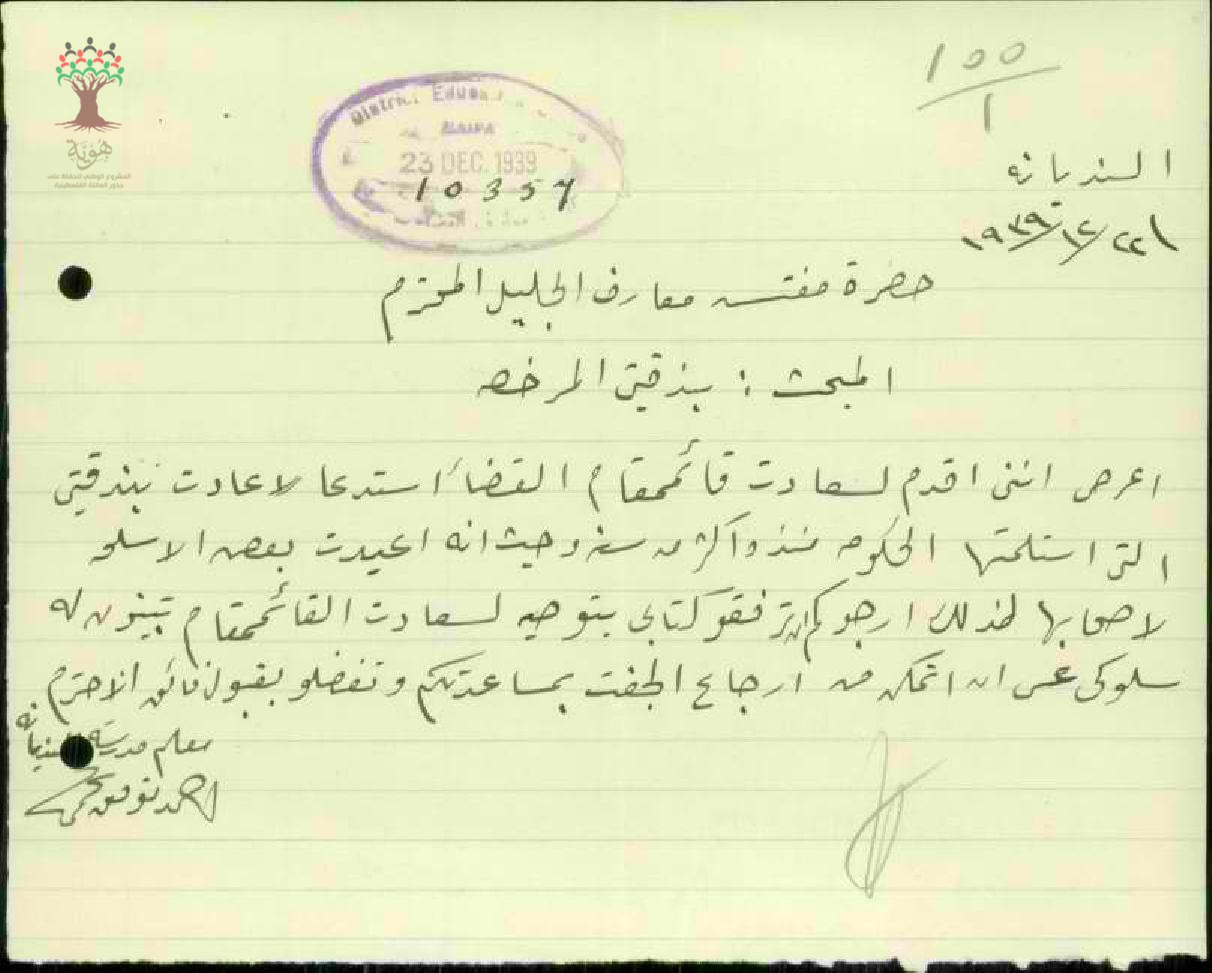 هوية
المشروع الوطني للحفاظ على
جذور العائلة الفلسطينية
100
1
District Educa
HAIFA
23 DEC. 1939
10357
السنديانه
٢٢/١٢/١٩٣٩
حضرة مفتش معارف الجليل المحترم
المبحث : بندقيتي المرخصه
اعرض انني اقدم لسعادت قائممقام القضاء استدعا لاعادت بندقيتي
التي استلمتها الحكومه منذ واكثر من سنه وحيث انه اعيدت بعض الاسلحه
لاصحابها لهذلك ارجوكم ان ترفقو كتابي بتوصيه لسعادت القائممقام تبينون له
سلوكي عسى ان اتمكن من ارجاع الجفت بمساعدتكم وتفضلو بقبول فائق الاحترم
معلم مدرسة السنديانه
احمد توفيق